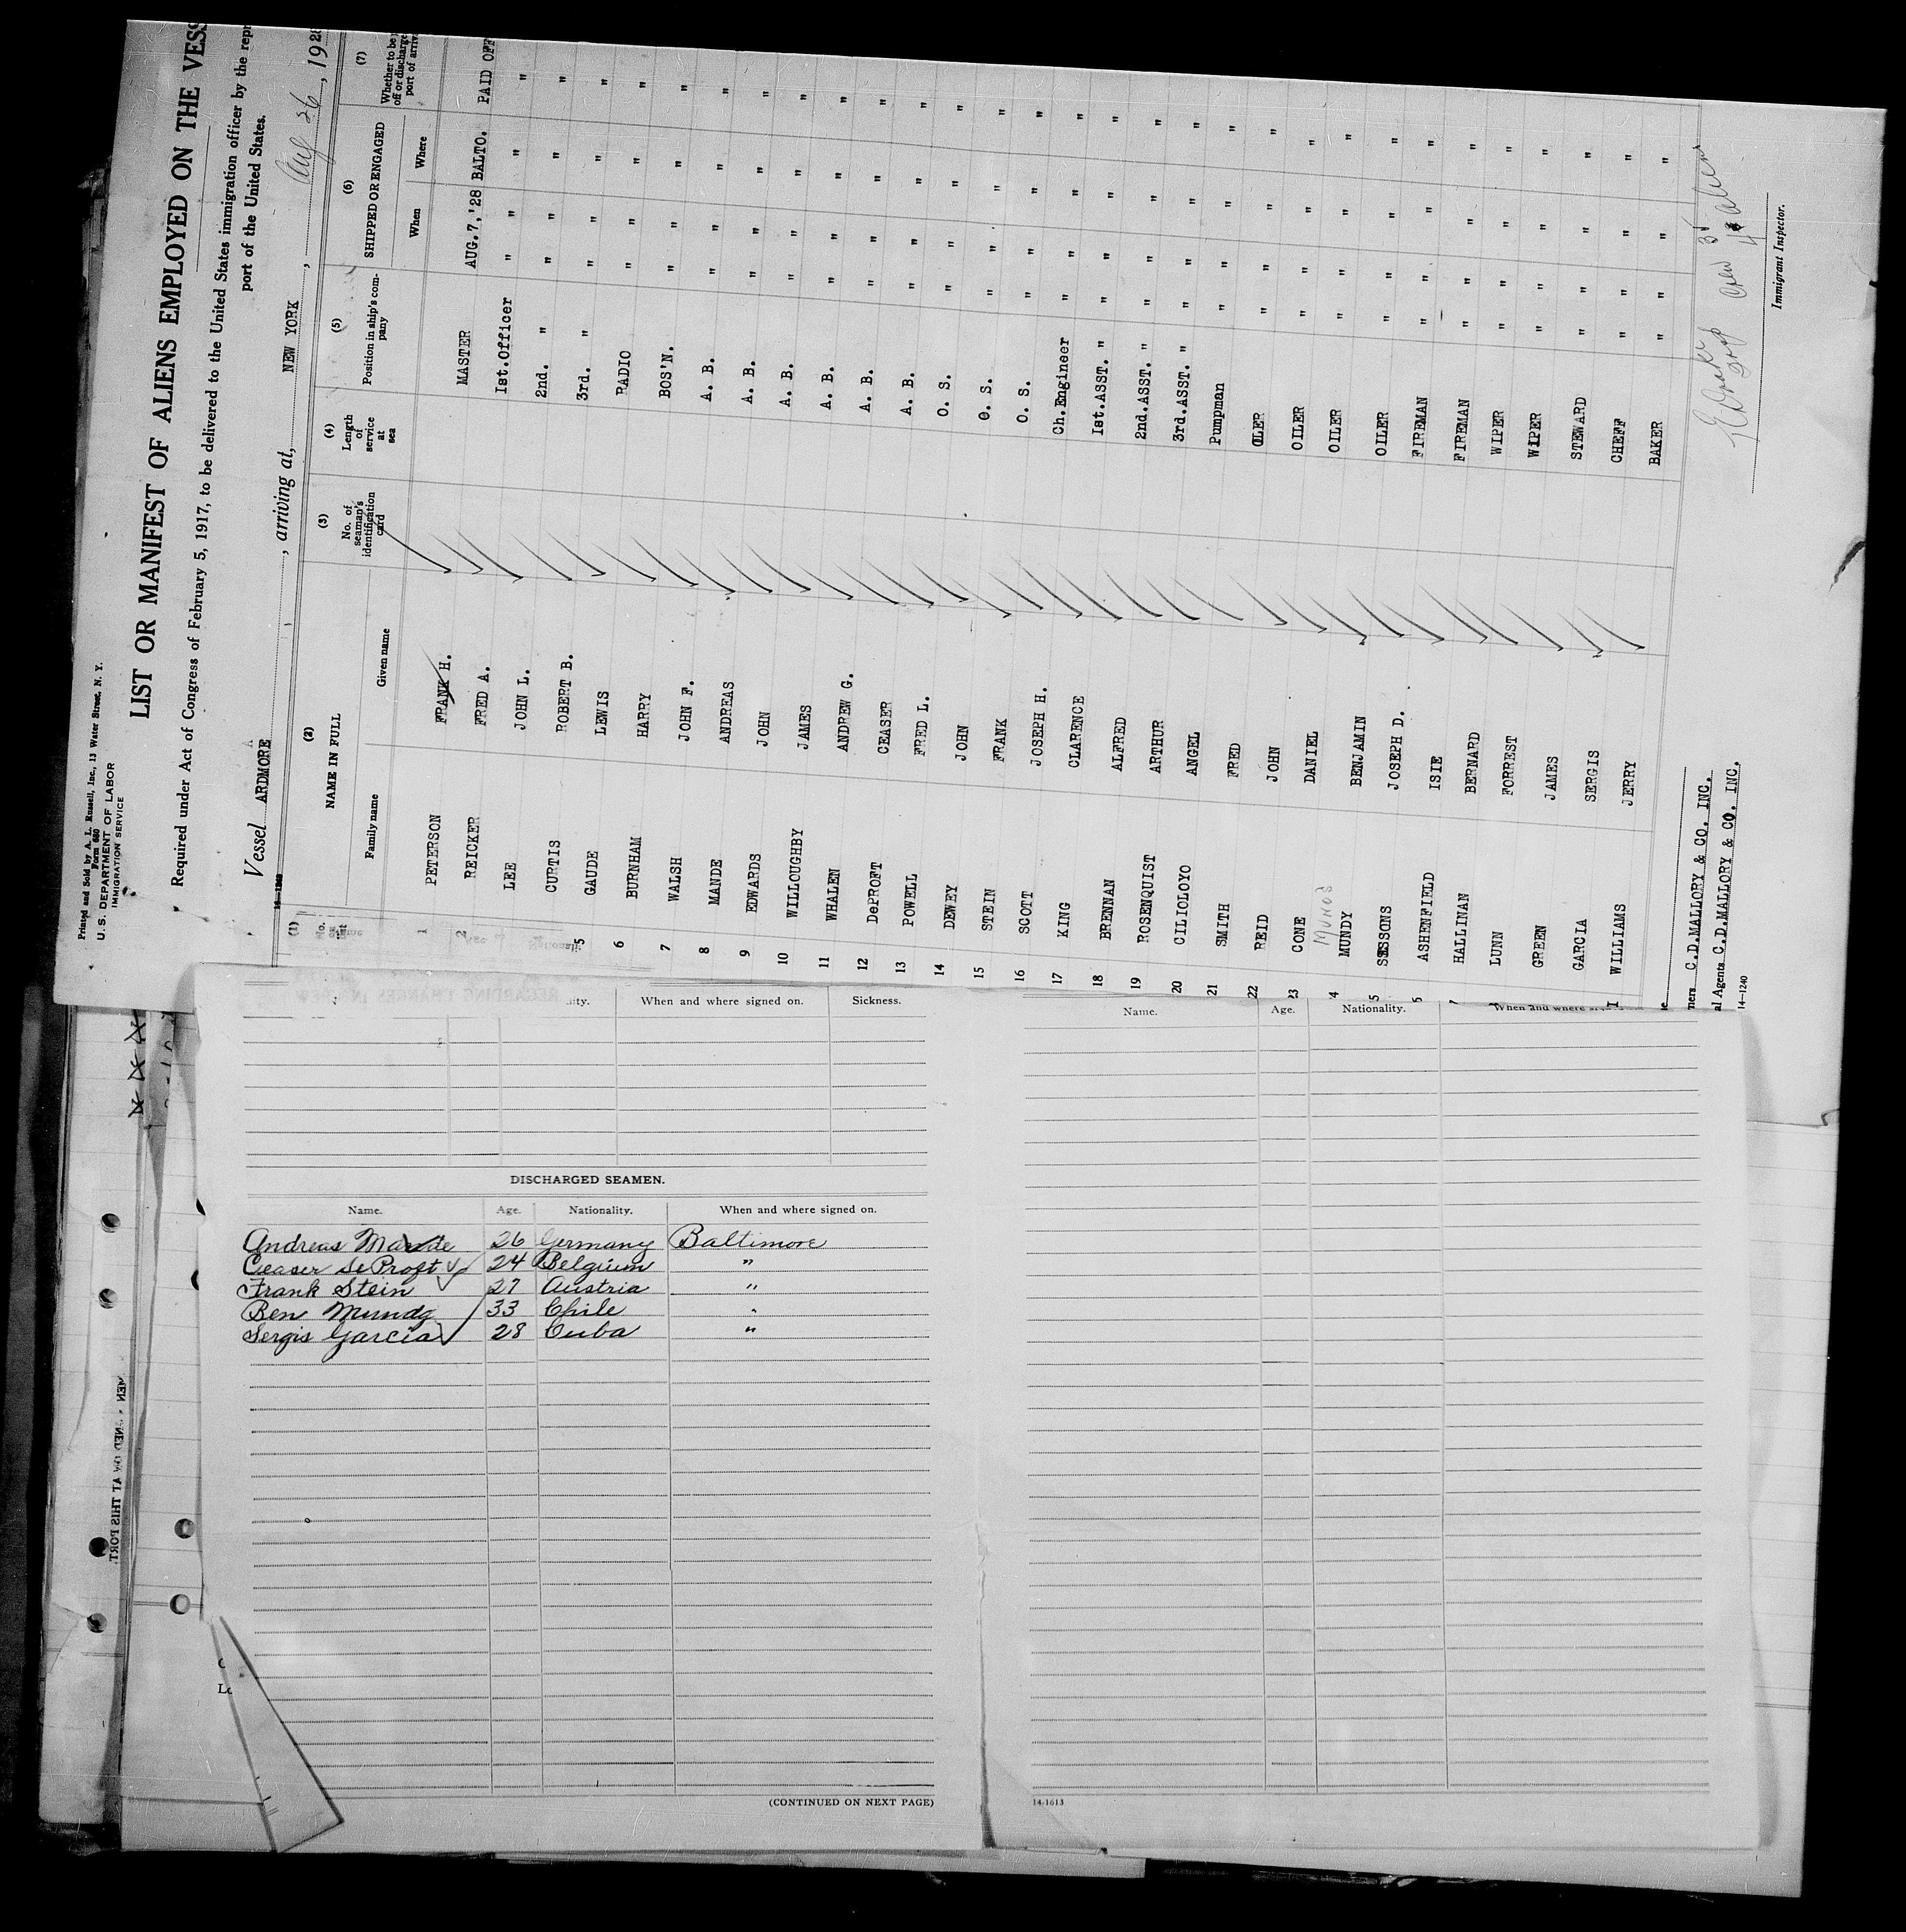 Printed and Sold by A. L. Russell, Inc., 13 Water Street, N. Y.
Form 680
U. S. DEPARTMENT OF LABOR
IMMIGRATION SERVICE
LIST OR MANIFEST OF ALIENS EMPLOYED ON THE VESS
Required under Act of Congress of February 5, 1917, to be delivered to the United States immigration officer by the repr
port of the United States.
Vessel ARDMORE, arriving at, NEW YORK, Aug 26, 1928
14-1240
(1) (2) (3) (4) (5) (6) (7)
NAME IN FULL
No. of seaman's identification card
Length of service at sea
Position in ship's company
SHIPPED OR ENGAGED
Whether to be off or discharge port of arriv
Family name Given name When Where
1 PETERSON FRANK H. MASTER AUG.7,'28 BALTO. PAID OFF
2 REICKER FRED A. Ist.Officer " " "
LEE JOHN L. 2nd. " " " "
CURTIS ROBERT B. 3rd. " " " "
5 GAUDE LEWIS RADIO " " "
6 BURNHAM HARRY BOS'N. " " "
7 WALSH JOHN F. A. B. " " "
8 MANDE ANDREAS A. B. " " "
9 EDWARDS JOHN A. B. " " "
10 WILLOUGHBY JAMES A. B. " " "
11 WHALEN ANDREW G. A. B. " " "
12 DePROFT CEASER A. B. " " "
13 POWELL FRED L. O. S. " " "
14 DEWEY JOHN O. S. " " "
15 STEIN FRANK O. S. " " "
16 SCOTT JOSEPH H. Ch.Engineer " " "
17 KING CLARENCE 1st.ASST. " " " "
18 BRENNAN ALFRED 2nd.ASST. " " " "
19 ROSENQUIST ARTHUR 3rd.ASST. " " " "
20 CILIOLOYO ANGEL Pumpman " " "
21 SMITH FRED OLER " " "
22 REID JOHN OILER " " "
23 CONE DANIEL OILER " " "
Munos
4 MUNDY BENJAMIN OILER " " "
5 SESSONS JOSEPH D. FIREMAN " " "
6 ASHENFIELD ISIE FIREMAN " " "
7 HALLINAN BERNARD WIPER " " "
LUNN FORREST WIPER " " "
GREEN JAMES STEWARD " " "
GARCIA SERGIS CHEFF " " "
1 WILLIAMS JERRY BAKER " " "
ners C.D.MALLORY & CO. INC.
al Agents C.D.MALLORY & CO. INC.
14-1240
Crew 35
4 Aliens
Immigrant Inspector.
REGARDING CHANGES IN CREW
ity. When and where signed on. Sickness.
DISCHARGED SEAMEN.
Name. Age. Nationality. When and where signed on.
Andreas Mande 26 Germany Baltimore
Ceaser DeProft 24 Belgium "
Frank Stein 27 Austria "
Ben Mundy 33 Chile "
Sergis Garcia 28 Cuba "
(CONTINUED ON NEXT PAGE)
Name. Age. Nationality. When and where
14-1613
AT THIS PORT.